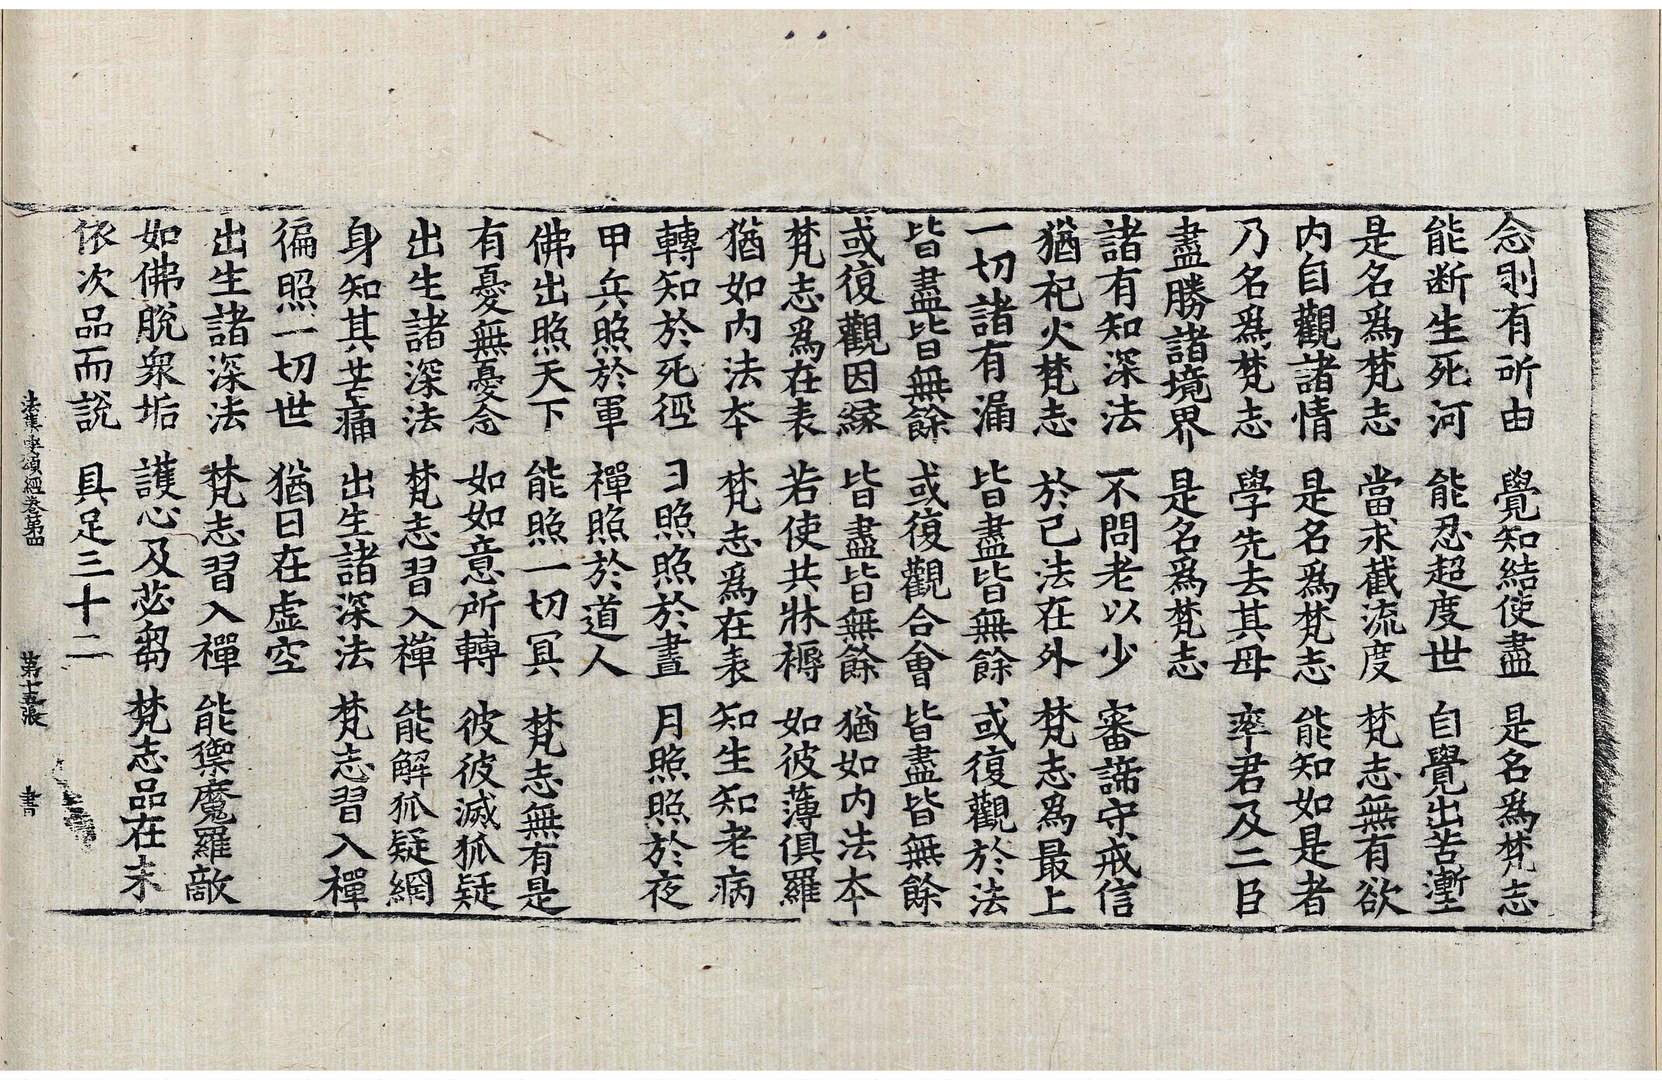 念則有所由　覺知結使盡　是名爲梵志
能断生死河　能忍超度世　自覺出苦壍
是名爲梵志　當求截流度　梵志無有欲
内自觀諸情　是名爲梵志　能知如是者
乃名爲梵志　學先去其母　率君及二臣
盡勝諸境界　是名爲梵志
諸有知深法　不問老以少　審諦守戒信
猶祀火梵志　於己法在外　梵志爲最上
一切諸有漏　皆盡皆無餘　或復觀於法
皆盡皆無餘　或復觀合會　皆盡皆無餘
或復觀因縁　皆盡皆無餘　猶如内法本
梵志爲在表　若使共牀褥　如彼薄俱羅
猶如内法本　梵志爲在表　知生知老病
轉知於死徑　日照照於晝　月照照於夜
甲兵照於軍　禪照於道人
佛出照天下　能照一切冥　梵志無有是
有憂無憂念　如如意所轉　彼彼滅狐疑
出生諸深法　梵志習入禪　能解狐疑網
身知其苦痛　出生諸深法　梵志習入禪
徧照一切世　猶日在虚空
出生諸深法　梵志習入禪　能禦魔羅敵
如佛脫衆垢　護心及苾芻　梵志品在末
依次品而說　具足三十二
法集要頌經卷第四　第十五張　書